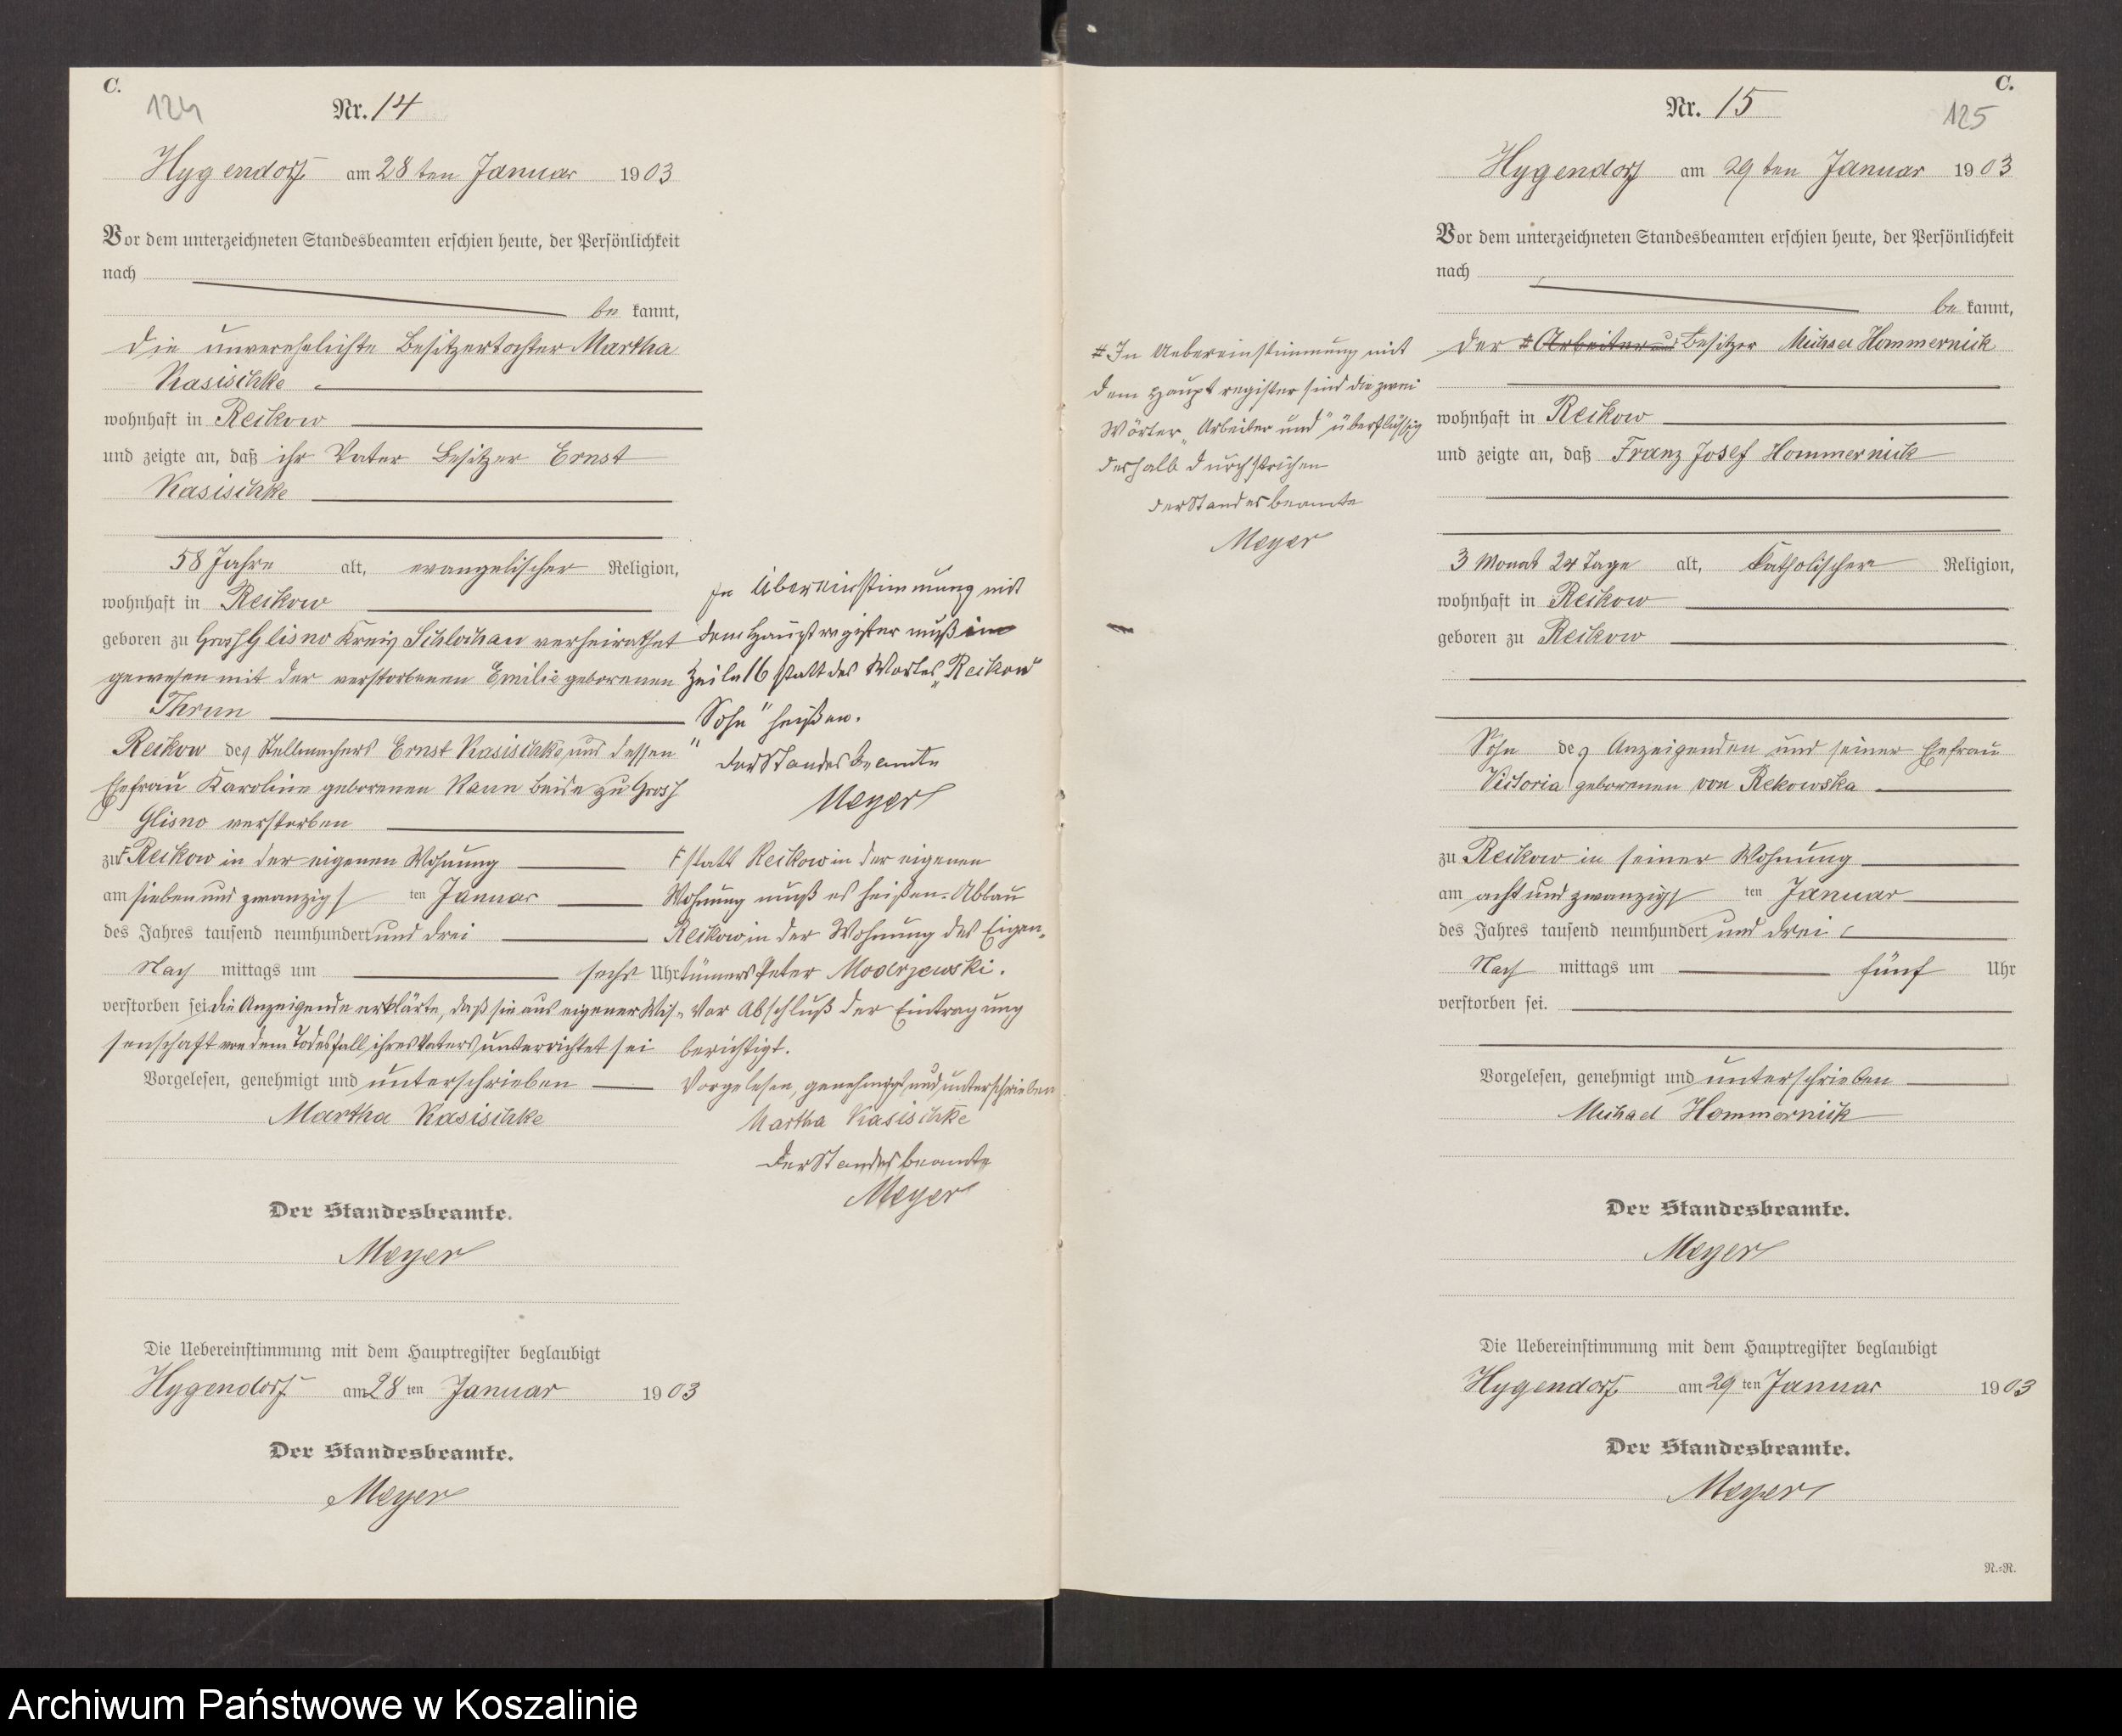 C.
124
Nr. 14
Hygendorf am 28 ten Januar 1903
Vor dem unterzeichneten Standesbeamten erschien heute, der Persönlichkeit
nach
be kannt,
die unverehelichte Besitzertochter Martha
Kasischke
wohnhaft in Reikow
und zeigte an, daß ihr Vater Besitzer Ernst
Kasischke
58 Jahre alt, evangelischer Religion,
wohnhaft in Reikow
geboren zu Groß Glisno Kreis Schlochau verheirathet
gewesen mit der verstorbenen Emilie geborenen
Thrun
Reikow des Stellmachers Ernst Kasischke und dessen
Ehefrau Karoline geborenen Rann beide zu Groß
Glisno verstorben
zu F Reikow in der eigenen Wohnung
am sieben und zwanzigs ten Januar
des Jahres tausend neunhundert und drei
Nach mittags um sechs Uhr
verstorben sei die Anzeigende erklärte, daß sie aus eigener Wis-
senschaft von dem Todesfall ihres Vaters unterrichtet sei
Vorgelesen, genehmigt und unterschrieben
Martha Kasischke
Der Standesbeamte.
Meyer
Die Uebereinstimmung mit dem Hauptregister beglaubigt
Hygendorf am 28 ten Januar 1903
Der Standesbeamte.
Meyer
In Übereinstimmung mit
dem Hauptregister muß im
Zeile 16 statt des Wortes „Reikow"
„Sohn" heißen.
der Standesbeamte
Meyer
F statt Reikow in der eigenen
Wohnung muß es heißen. Abbau
Reikow in der Wohnung des Eigen-
tümers Peter Moderzewski.
Vor Abschluß der Eintragung
berichtigt.
Vorgelesen, genehmigt und unterschrieben
Martha Kasischke
der Standesbeamte
Meyer
C.
125
Nr. 15
Hygendorf am 29 ten Januar 1903
Vor dem unterzeichneten Standesbeamten erschien heute, der Persönlichkeit
nach
be kannt,
der # Arbeiter und Besitzer Michael Hommernick
wohnhaft in Reikow
und zeigte an, daß Franz Josef Hommernick
3 Monat 24 Tage alt, katholischer Religion,
wohnhaft in Reikow
geboren zu Reikow
Sohn des Anzeigenden und seiner Ehefrau
Victoria geborenen von Rekowska
zu Reikow in seiner Wohnung
am acht und zwanzigs ten Januar
des Jahres tausend neunhundert und drei
Nach mittags um fünf Uhr
verstorben sei.
Vorgelesen, genehmigt und unterschrieben
Michael Hommernick
Der Standesbeamte.
Meyer
Die Uebereinstimmung mit dem Hauptregister beglaubigt
Hygendorf am 29 ten Januar 1903
Der Standesbeamte.
Meyer
R.-R.
# In Uebereinstimmung mit
dem Hauptregister sind die zwei
Wörter „Arbeiter und" überflüssig
deshalb durchstrichen
der Standesbeamte
Meyer
Archiwum Państwowe w Koszalinie